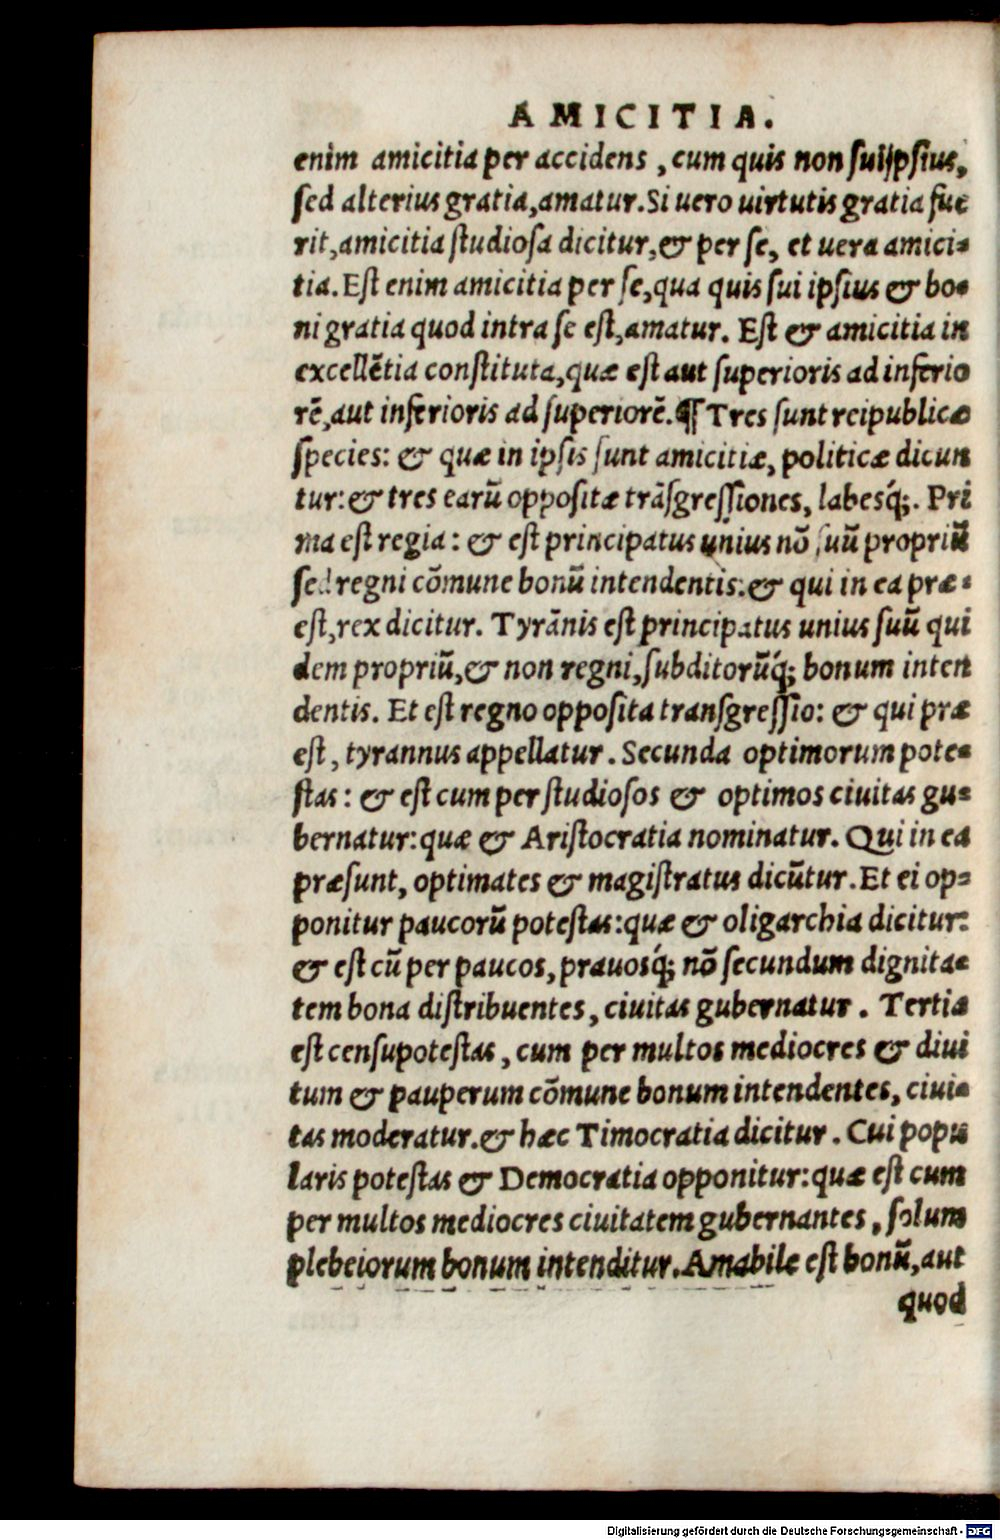 AMICITIA.
enim amicitia per accidens, cum quis non suiipsius,
sed alterius gratia, amatur. Si uero uirtutis gratia fue
rit, amicitia studiosa dicitur, & per se, et uera amici-
tia. Est enim amicitia per se, qua quis sui ipsius & bo-
ni gratia quod intra se est, amatur. Est & amicitia in
excellētia constituta, quæ est aut superioris ad inferio
rē, aut inferioris ad superiorē. ¶ Tres sunt reipublicæ
species: & quæ in ipsis sunt amicitiæ, politicæ dicun
tur: & tres earū oppositæ trāsgressiones, labesq́;. Pri
ma est regia: & est principatus unius nō suū propriū
sed regni cōmune bonū intendentis: & qui in ea præ-
est, rex dicitur. Tyrānis est principatus unius suū qui
dem propriū, & non regni, subditorūq́; bonum inten
dentis. Et est regno opposita transgressio: & qui præ
est, tyrannus appellatur. Secunda optimorum pote-
stas: & est cum per studiosos & optimos ciuitas gu-
bernatur: quæ & Aristocratia nominatur. Qui in ea
præsunt, optimates & magistratus dicūtur. Et ei op-
ponitur paucorū potestas: quæ & oligarchia dicitur:
& est cū per paucos, prauosq́; nō secundum dignita-
tem bona distribuentes, ciuitas gubernatur. Tertia
est censupotestas, cum per multos mediocres & diui
tum & pauperum cōmune bonum intendentes, ciui-
tas moderatur. & hæc Timocratia dicitur. Cui popu
laris potestas & Democratia opponitur: quæ est cum
per multos mediocres ciuitatem gubernantes, solum
plebeiorum bonum intenditur. Amabile est bonū, aut
quod
Digitalisierung gefördert durch die Deutsche Forschungsgemeinschaft - DFG